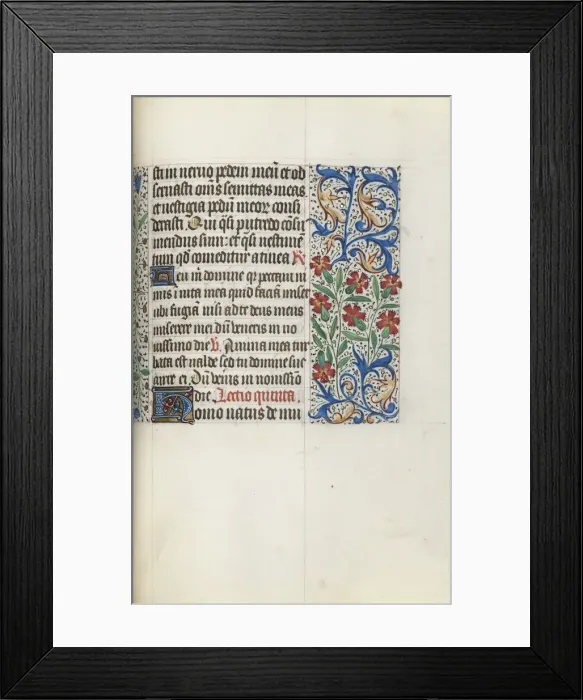 sti in neruo pedem meū et ob
seruasti om̄s semittas meas
et uestigia pedū meoꝝ consi
derasti. Qui q̄si putredo cōsu
mendus sum: et q̄si uestimē
tum qd̄ comeditur a tinea R̷
Heu m̄ domine qr̄ peccaui ni
mis in uita mea quid faciā miser
ubi fugiā nisi ad te deus meus
miserere mei dū veneris in no
uissimo die V̷. Anima mea tur
bata est ualde sed tu domine suc
curre ei. Dū venis in nouissīo
die. Lectio quinta.
Homo natus de mu